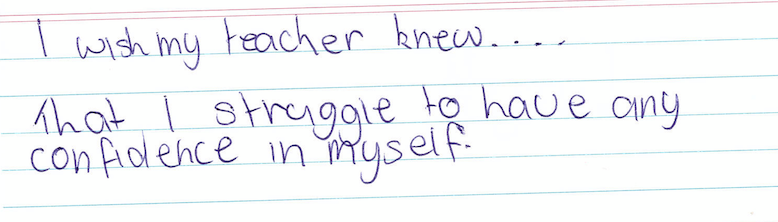 I wish my teacher knew.....
That I struggle to have any
confidence in myself.